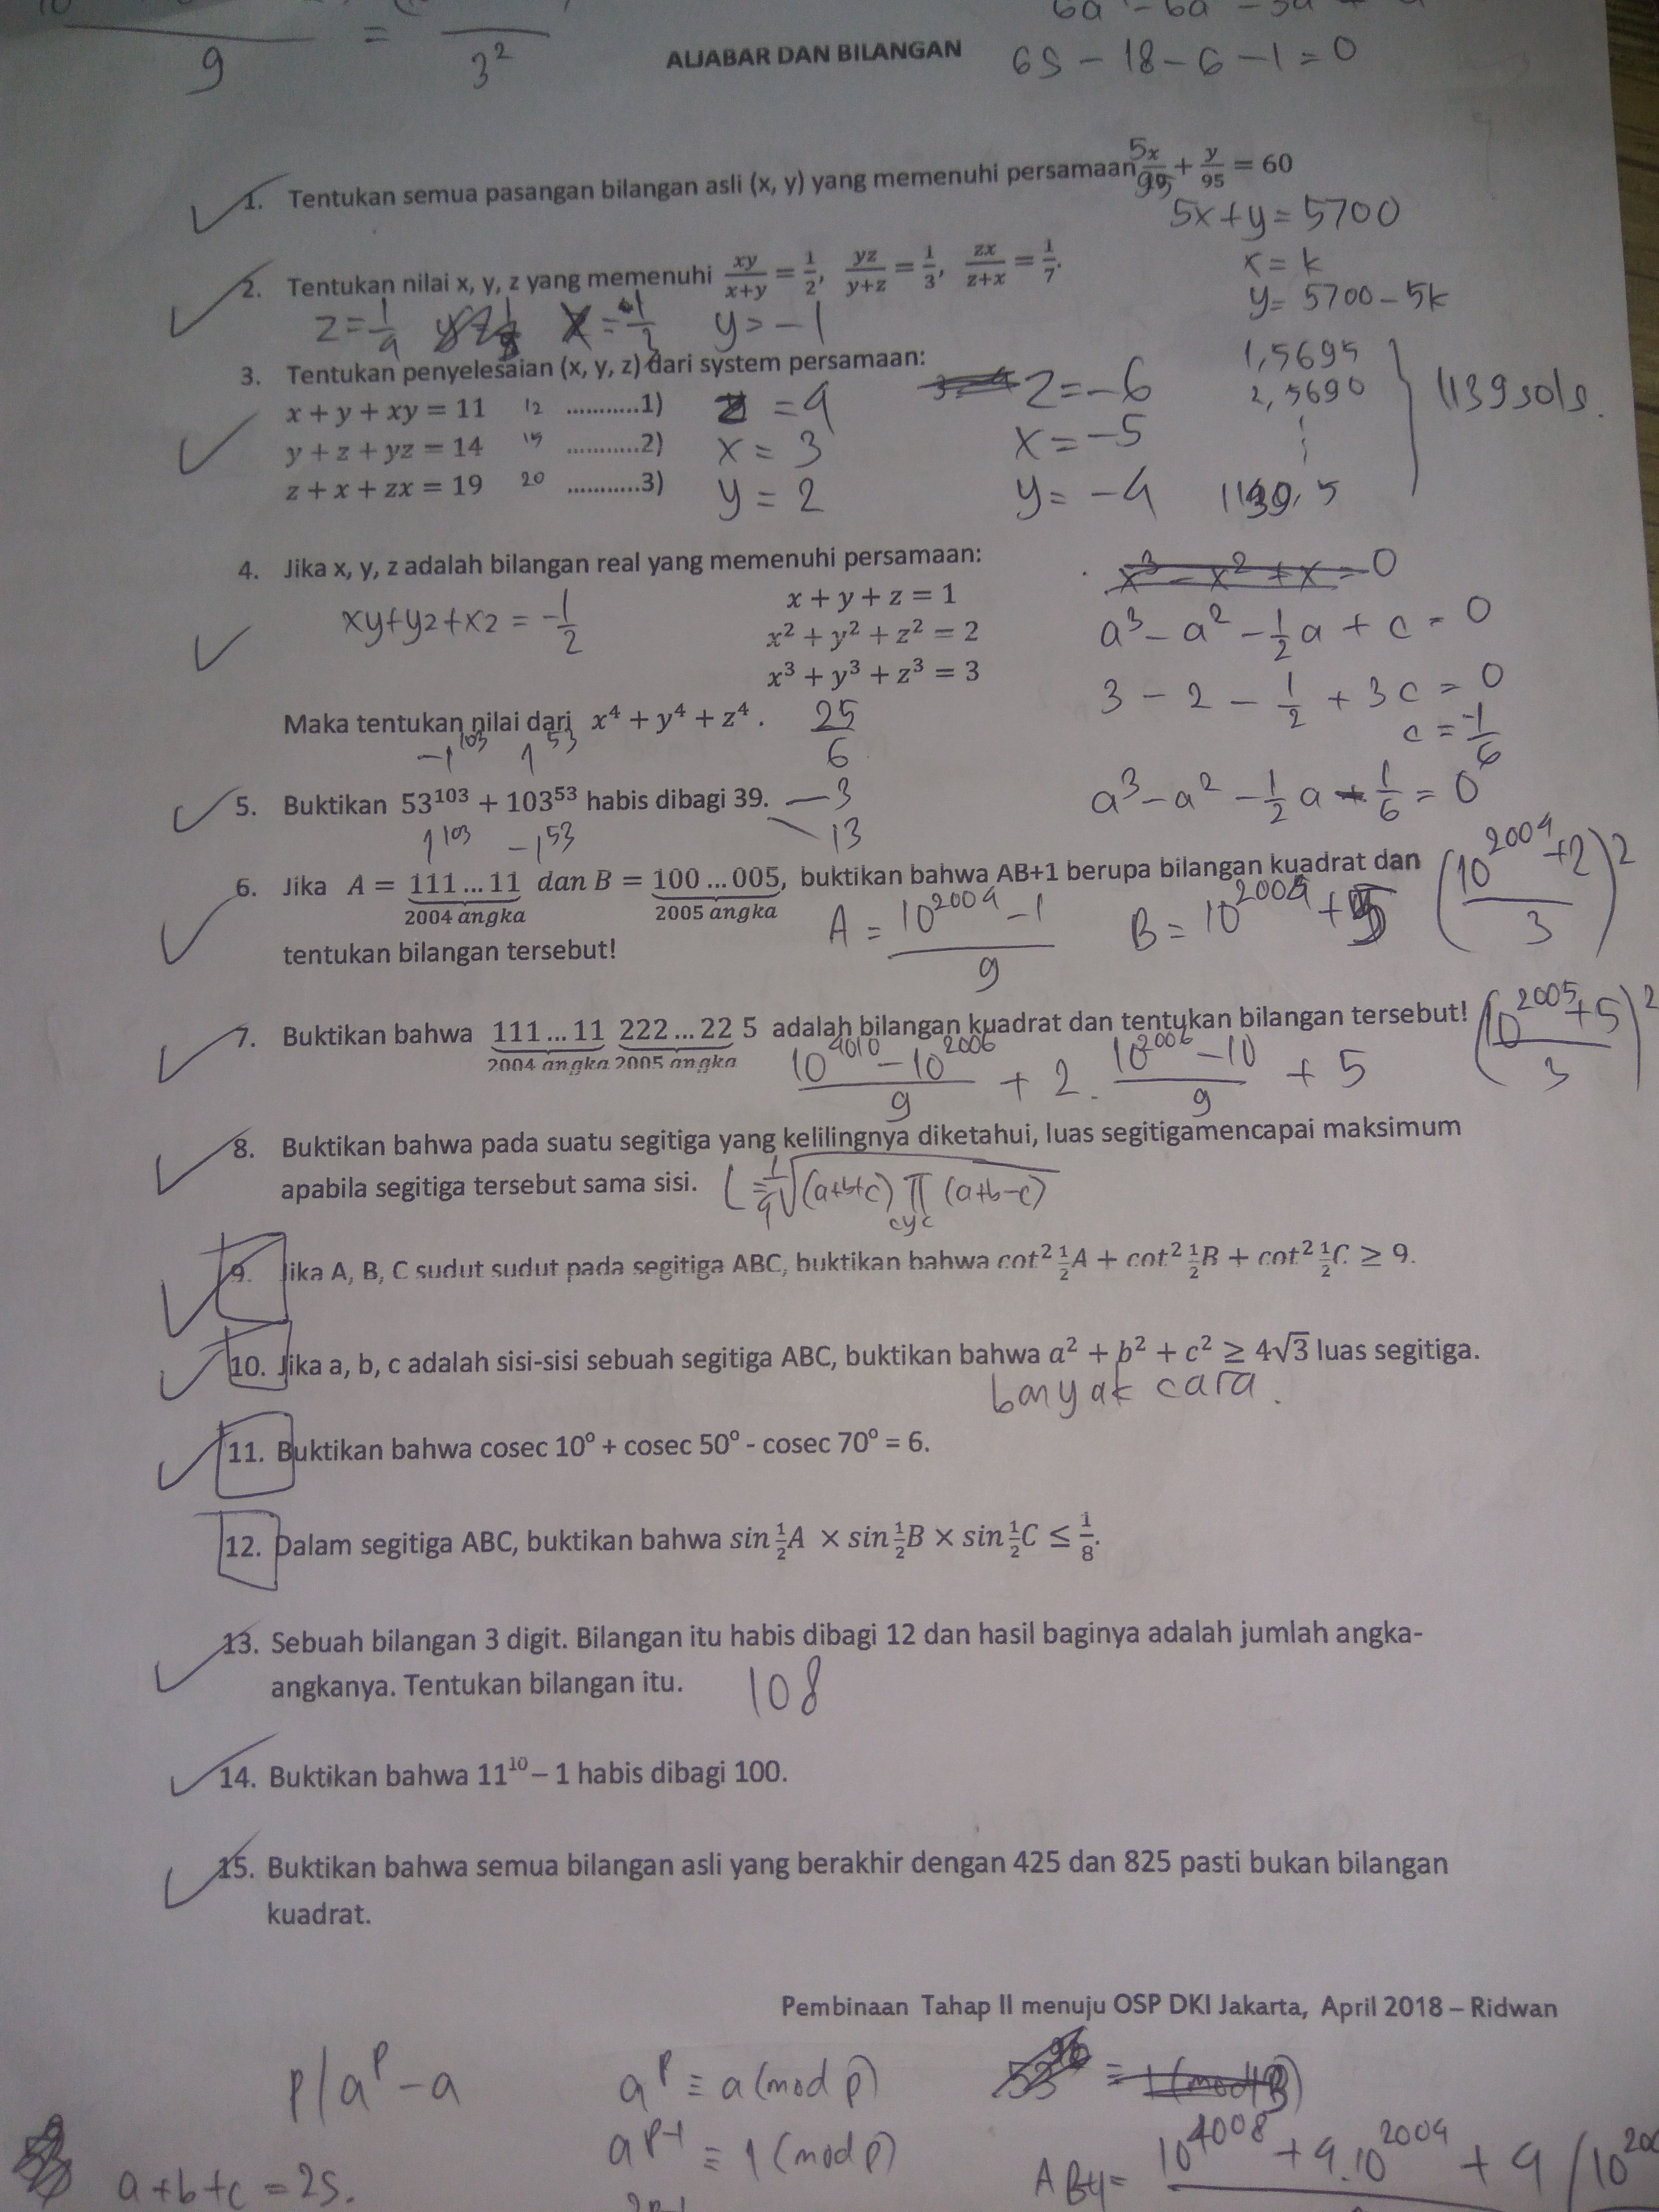 9 = 3²
ALJABAR DAN BILANGAN
6S - 18 - 6 - 1 = 0
1. Tentukan semua pasangan bilangan asli (x, y) yang memenuhi persamaan 5x/95 + y/95 = 60
5x + y = 5700
x = k
y = 5700 - 5k
1, 5695
2, 5690
⋮
1139, 5
1139 sols.
2. Tentukan nilai x, y, z yang memenuhi xy/(x+y) = 1/2, yz/(y+z) = 1/3, zx/(z+x) = 1/7.
z = 1/4 y > -1
3. Tentukan penyelesaian (x, y, z) dari system persamaan:
x + y + xy = 11 12 ...........1) = 4 z = -6
y + z + yz = 14 15 ...........2) x = 3 x = -5
z + x + zx = 19 20 ...........3) y = 2 y = -4
4. Jika x, y, z adalah bilangan real yang memenuhi persamaan:
x + y + z = 1
xy + yz + xz = -1/2
x² + y² + z² = 2
x³ + y³ + z³ = 3
Maka tentukan nilai dari x⁴ + y⁴ + z⁴ . 25/6
x³ - x² + x = 0
a³ - a² - 1/2 a + c = 0
3 - 2 - 1/2 + 3c = 0
c = -1/6
a³ - a² - 1/2 a - 1/6 = 0
-1¹⁰³ 1⁵³
5. Buktikan 53¹⁰³ + 103⁵³ habis dibagi 39. 3
13
1¹⁰³ -1⁵³
6. Jika A = 111 … 11 dan B = 100 … 005, buktikan bahwa AB+1 berupa bilangan kuadrat dan
2004 angka 2005 angka
((10²⁰⁰⁴ + 2)/3)²
tentukan bilangan tersebut!
A = (10²⁰⁰⁴ - 1)/9 B = 10²⁰⁰⁴ + 5
7. Buktikan bahwa 111 … 11 222 … 22 5 adalah bilangan kuadrat dan tentukan bilangan tersebut!
2004 angka 2005 angka
((10²⁰⁰⁵ + 5)/3)²
(10⁴⁰¹⁰ - 10²⁰⁰⁶)/9 + 2 . (10²⁰⁰⁶ - 10)/9 + 5
8. Buktikan bahwa pada suatu segitiga yang kelilingnya diketahui, luas segitigamencapai maksimum
apabila segitiga tersebut sama sisi. L = 1/4 √((a+b+c) ∏ (a+b-c))
cyc
9. Jika A, B, C sudut sudut pada segitiga ABC, buktikan bahwa cot² ½A + cot² ½B + cot² ½C ≥ 9.
10. Jika a, b, c adalah sisi-sisi sebuah segitiga ABC, buktikan bahwa a² + b² + c² ≥ 4√3 luas segitiga.
banyak cara.
11. Buktikan bahwa cosec 10° + cosec 50° - cosec 70° = 6.
12. Dalam segitiga ABC, buktikan bahwa sin ½A × sin ½B × sin ½C ≤ 1/8.
13. Sebuah bilangan 3 digit. Bilangan itu habis dibagi 12 dan hasil baginya adalah jumlah angka-
angkanya. Tentukan bilangan itu. 108
14. Buktikan bahwa 11¹⁰ – 1 habis dibagi 100.
15. Buktikan bahwa semua bilangan asli yang berakhir dengan 425 dan 825 pasti bukan bilangan
kuadrat.
Pembinaan Tahap II menuju OSP DKI Jakarta, April 2018 – Ridwan
p | aᵖ - a aᵖ ≡ a (mod p)
aᵖ⁻¹ ≡ 1 (mod p)
a + b + c = 25.
10⁴⁰⁰⁸ + 4.10²⁰⁰⁴ + 4